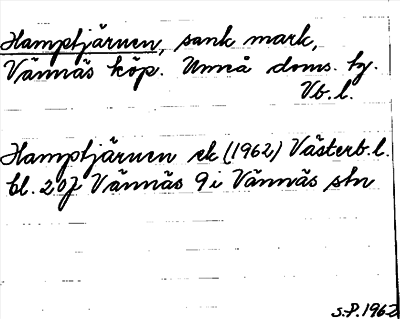 Hamptjärnen, sank mark,
Vännäs köp. Umeå doms. tg.
Vb.l.
Hamptjärnen ek (1962) Västerb.l.
bl. 207 Vännäs 9i Vännäs stn
S.P. 1962